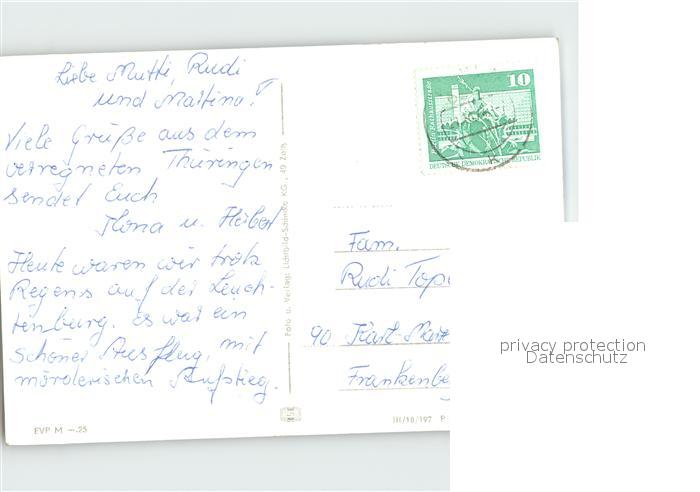 Liebe Mutti, Rudi
und Martina!
Viele Grüße aus dem
verregneten Thüringen
sendet Euch
Ilona u. Herbert
Heute waren wir trotz
Regens auf der Leuch-
tenburg. Es war ein
schöner Ausflug, mit
mörderischen Aufstieg.
EVP M —.25
Foto u. Verlag: Lichtbild-Schincke KG., 49 Zeitz
10
Rathausstraße
DEUTSCHE DEMOKRATISCHE REPUBLIK
Fam.
Rudi Tope
90 Karl-Marx
Frankenbe
III/18/197 P
privacy protection
Datenschutz